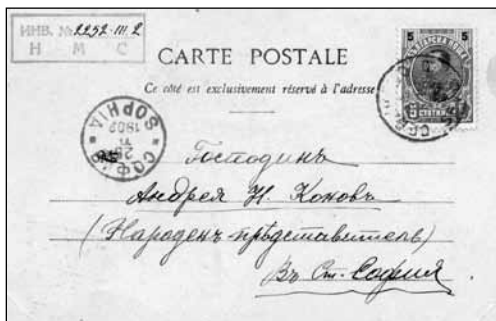 ИНВ. № 2252-III.2
Н М С
CARTE POSTALE
Ce côté est exclusivement réservé à l'adresse
5 5
СОФИЯ
SOPHIA
Господинъ
Андрея Н. Коновъ
(Народенъ прѣдставителъ)
Въ Ст. София